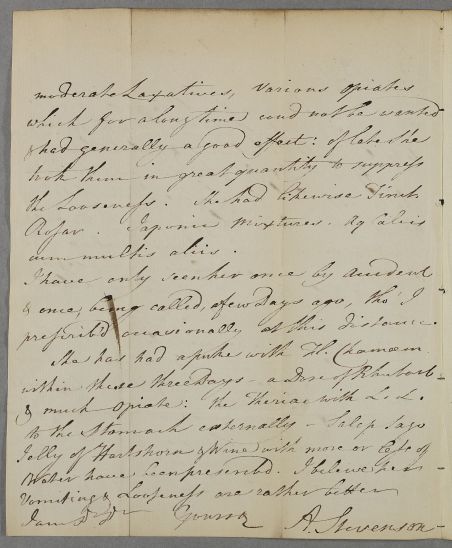 moderate Laxatives, Various opiates
which for a long time coud not be wanted
& had generally a good effect: of late she
took them in great quantity to suppress
the Looseness. She had likewise Tinct:
Rosar. Japonic Mixtures. Aq Calcis
cum multis aliis.
I have only seen her once by accident
& once, being called, a few Days ago, tho I
prescrib'd occasionally at this distance.
She has had a puke with Fl. Chamæm
within these three Days - a Dose of Rhubarb
& much opiate: the Theriac with L. L.
to the Stomach externally - Salep Sago
Jelly of Hartshorn & Wine with more or less of
Water have been prescribd. I beleive her
Vomiting & Looseness are rather better
I am Dr Dr Yours &c A. Stevenson